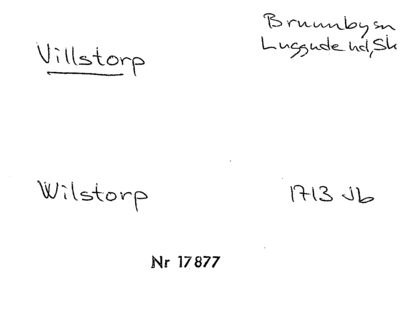 Villstorp
Brunnby sn
Luggude hd, Sk
Wilstorp
1713 Jb
Nr 17877